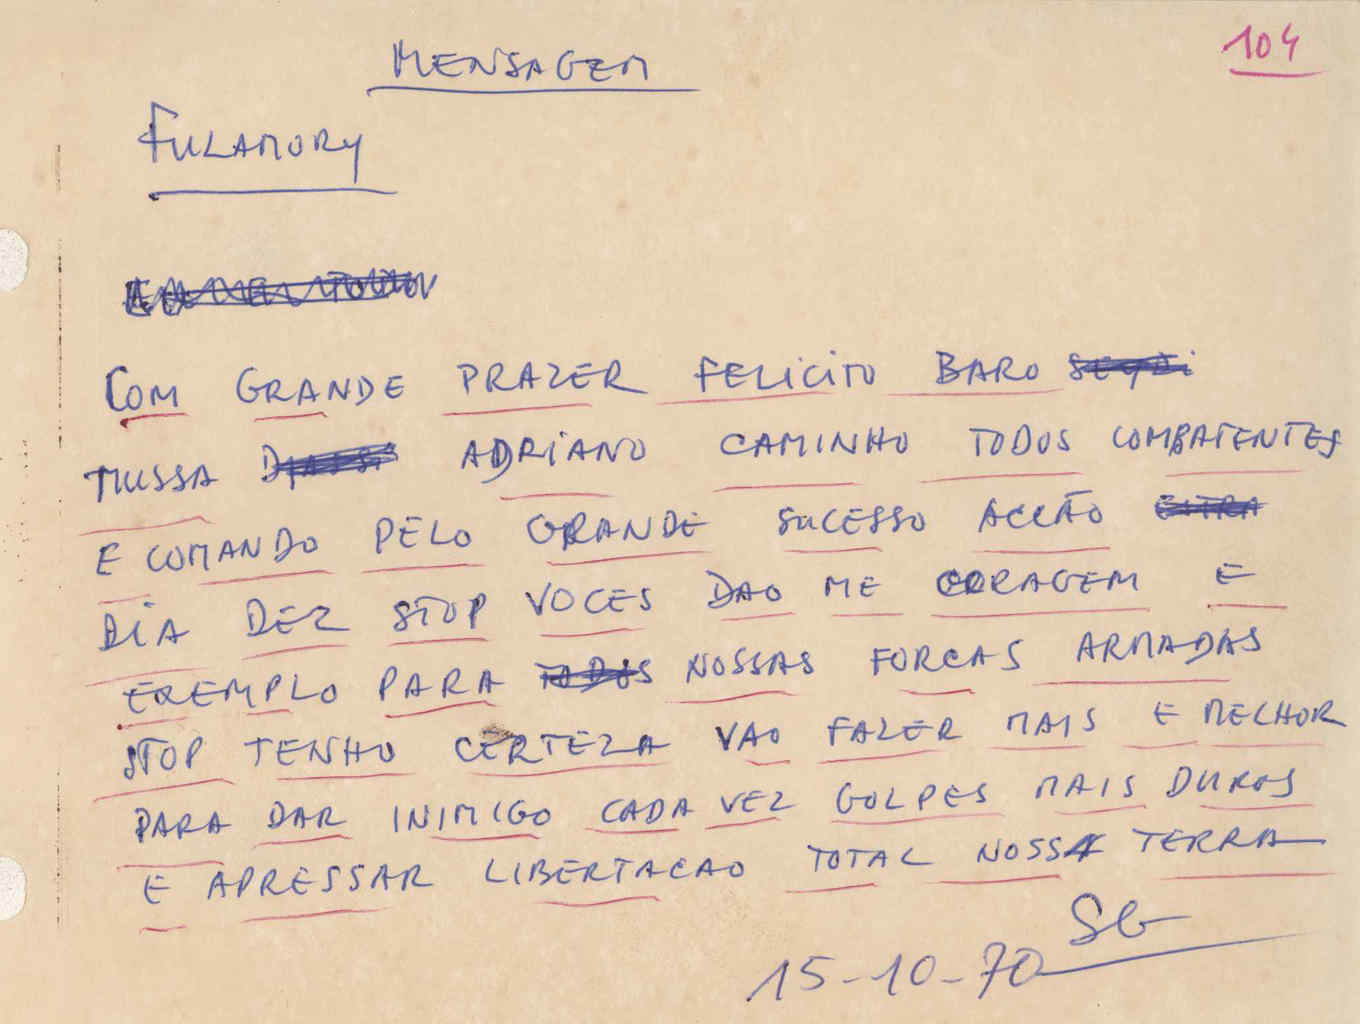 104
MENSAGEM
FULAMORY
COM GRANDE PRAZER FELICITO BARO
MUSSA ADRIANO CAMINHO TODOS COMBATENTES
E COMANDO PELO GRANDE SUCESSO ACCÃO
DIA DEZ STOP VOCES DAO ME CORAGEM E
EXEMPLO PARA NOSSAS FORCAS ARMADAS
STOP TENHO CERTEZA VAO FAZER MAIS E MELHOR
PARA DAR INIMIGO CADA VEZ GOLPES MAIS DUROS
E APRESSAR LIBERTACAO TOTAL NOSSA TERRA
SG
15-10-70